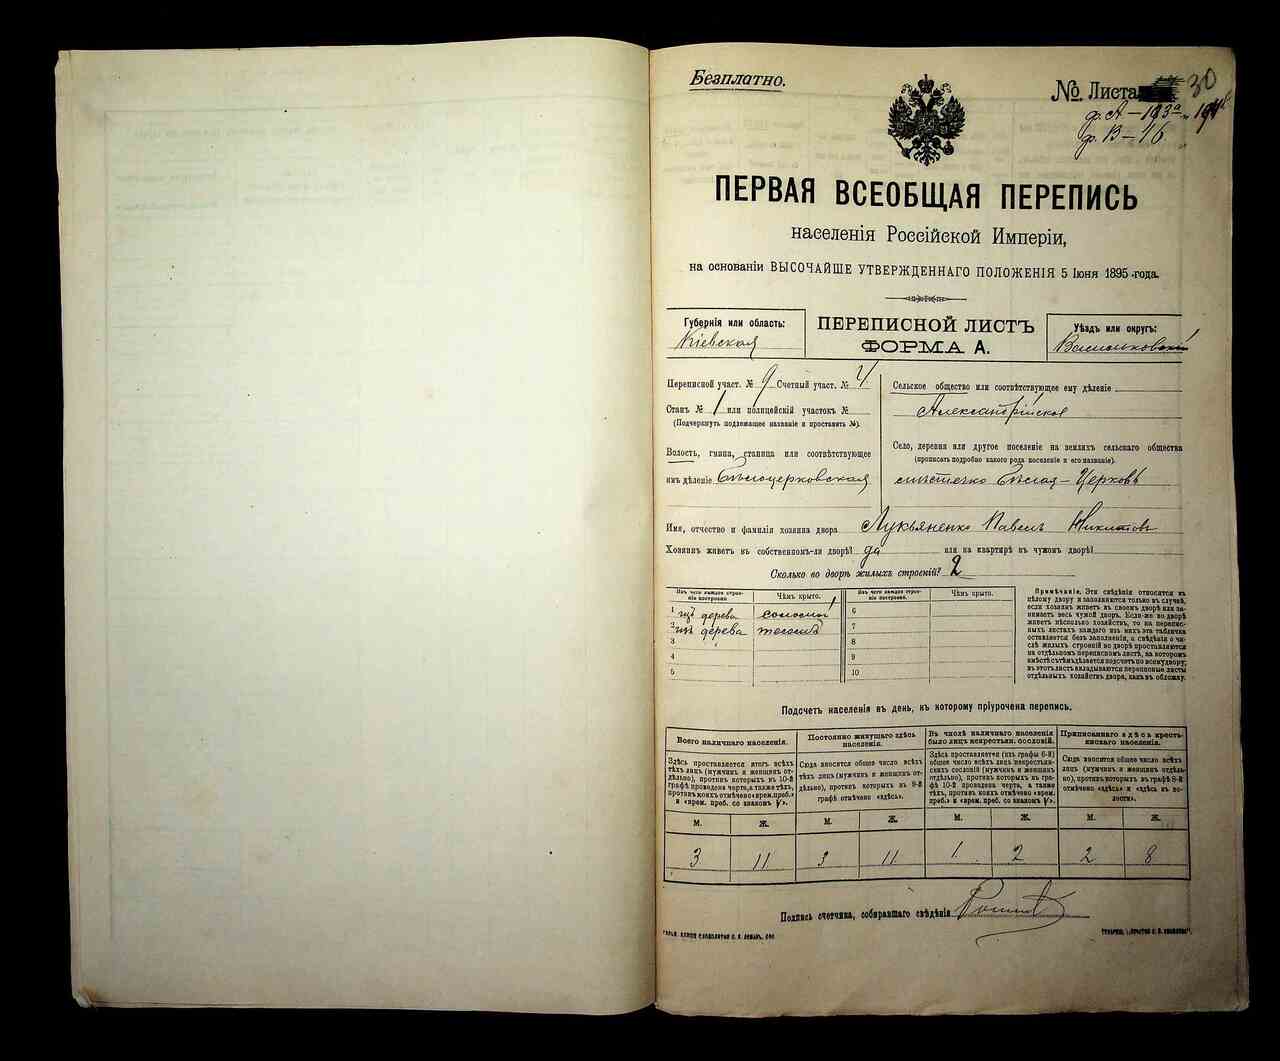 Безплатно.
№. Листа 30
ф. А — 193а
ф. В — 16
ПЕРВАЯ ВСЕОБЩАЯ ПЕРЕПИСЬ
населенія Россійской Имперіи,
на основаніи ВЫСОЧАЙШЕ УТВЕРЖДЕННАГО ПОЛОЖЕНІЯ 5 Іюня 1895 года.
Губернія или область:
Кіевская
ПЕРЕПИСНОЙ ЛИСТЪ
ФОРМА А.
Уѣздъ или округъ:
Васильковскій
Переписной участ. № 9 Счетный участ. № 4
Станъ № 1 или полицейскій участокъ №
(Подчеркнуть подлежащее названіе и проставить №).
Волость, гмина, станица или соотвѣтствующее
имъ дѣленіе Бѣлоцерковская
Сельское общество или соотвѣтствующее ему дѣленіе
Александрійское
Село, деревня или другое поселеніе на земляхъ сельскаго общества
(прописать подробно какого рода поселеніе и его названіе).
мѣстечко Бѣлая-Церковь
Имя, отчество и фамилія хозяина двора Лукьяненко Павелъ Никитовъ
Хозяинъ живетъ въ собственномъ-ли дворѣ? да или на квартирѣ въ чужомъ дворѣ?
Сколько во дворѣ жилыхъ строеній? 2
Изъ чего каждое строеніе построено.
Чѣмъ крыто.
1 изъ дерева соломой
2 изъ дерева
3
4
5
Изъ чего каждое строеніе построено.
Чѣмъ крыто.
6
7
8
9
10
Примѣчаніе. Эти свѣдѣнія относятся къ
цѣлому двору и заполняются только въ случаѣ,
если хозяинъ живетъ въ своемъ дворѣ или занимаетъ
весь чужой дворъ. Если-же во дворѣ
живетъ нѣсколько хозяйствъ, то на переписныхъ
листахъ каждаго изъ нихъ эта табличка
оставляется безъ заполненія, а свѣдѣнія о числѣ
жилыхъ строеній во дворѣ проставляются
на отдѣльномъ переписномъ листѣ, на которомъ
вмѣстѣ съ тѣмъ дѣлается подсчетъ по всему двору;
въ этотъ листъ вкладываются переписные листы
отдѣльныхъ хозяйствъ двора, какъ въ обложку.
Подсчетъ населенія въ день, къ которому пріурочена перепись.
Всего наличнаго населенія.
Здѣсь проставляется итогъ всѣхъ
тѣхъ лицъ (мужчинъ и женщинъ отдѣльно),
противъ которыхъ въ 10-й
графѣ проведена черта, а также тѣхъ,
противъ коихъ отмѣчено «врем. преб.»
и «врем. преб. со знакомъ V».
М. Ж.
3 11
Постоянно живущаго здѣсь населенія.
Сюда вносится общее число всѣхъ
тѣхъ лицъ (мужчинъ и женщинъ отдѣльно),
противъ которыхъ въ 9-й
графѣ отмѣчено «здѣсь».
М. Ж.
3 11
Въ числѣ наличнаго населенія
было лицъ некрестьян. сословій.
Здѣсь проставляется (изъ графы 6-й)
общее число всѣхъ лицъ некрестьянскихъ
сословій (мужчинъ и женщинъ
отдѣльно), противъ которыхъ въ
графѣ 10-й проведена черта, а также
тѣхъ, противъ коихъ отмѣчено «врем.
преб.» и «врем. преб. со знакомъ V».
М. Ж.
1 2
Приписаннаго здѣсь крестьянскаго населенія.
Сюда вносится общее число всѣхъ
лицъ (мужчинъ и женщинъ отдѣльно),
противъ которыхъ въ графѣ 8-й
отмѣчено «здѣсь» и «здѣсь въ волости».
М. Ж.
2 8
Подпись счетчика, собиравшаго свѣдѣнія